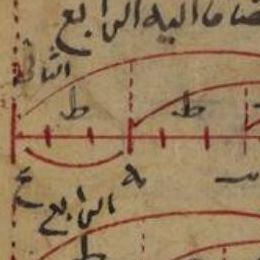 مضافا اليه الرابع
الثانى
ط ط
ع ه
الرابع
ط